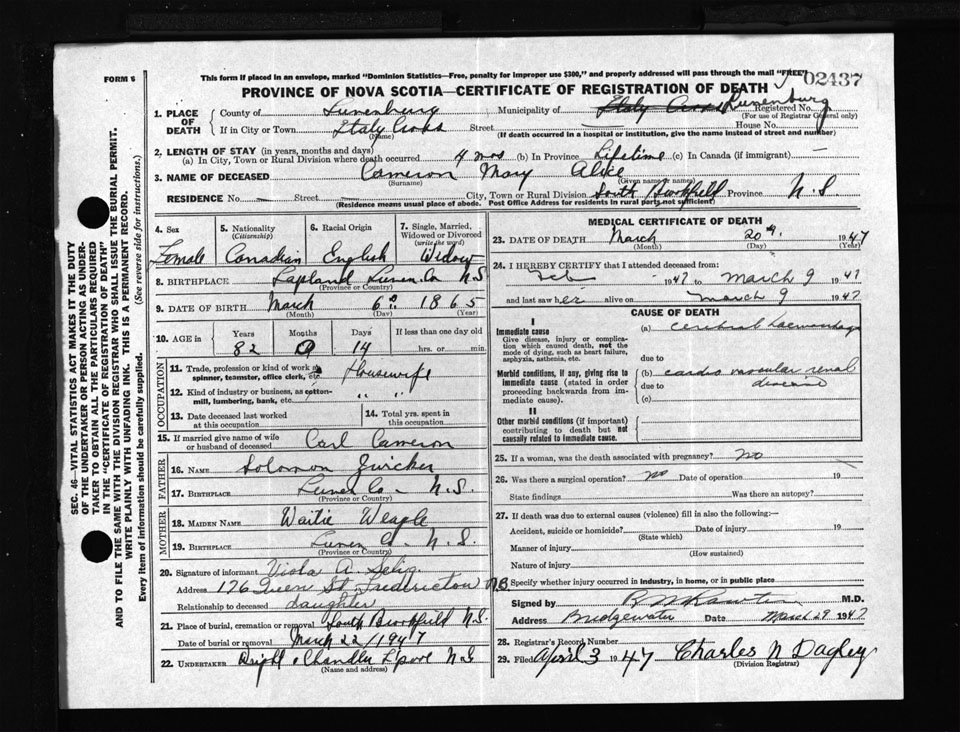 FORM 6
This form if placed in an envelope, marked "Dominion Statistics—Free, penalty for improper use $300," and properly addressed will pass through the mail "FREE"
02437
PROVINCE OF NOVA SCOTIA—CERTIFICATE OF REGISTRATION OF DEATH
1. PLACE OF DEATH County of Lunenburg Municipality of Italy Cross Lunenburg Registered No.
(For use of Registrar General only)
If in City or Town Italy Cross Street House No.
(Name) (If death occurred in a hospital or institution, give the name instead of street and number)
2. LENGTH OF STAY (in years, months and days)
(a) In City, Town or Rural Division where death occurred 4 mos (b) In Province Lifetime (c) In Canada (if immigrant) —
3. NAME OF DECEASED Cameron Mary Alice
(Surname) (Given name or names)
RESIDENCE No. — Street City, Town or Rural Division South Brookfield Province N S
(Residence means usual place of abode. Post Office Address for residents in rural parts not sufficient)
4. Sex Female
5. Nationality (Citizenship) Canadian
6. Racial Origin English
7. Single, Married, Widowed or Divorced (write the word) Widow
8. BIRTHPLACE Lapland Lunen. Co N S
(Province or Country)
9. DATE OF BIRTH March 6 1865
(Month) (Day) (Year)
10. AGE in Years 82 Months 0 Days 14 If less than one day old hrs. or min.
OCCUPATION
11. Trade, profession or kind of work as spinner, teamster, office clerk, etc. Housewife
12. Kind of industry or business, as cotton-mill, lumbering, bank, etc. " "
13. Date deceased last worked at this occupation
14. Total yrs. spent in this occupation
15. If married give name of wife or husband of deceased Carl Cameron
FATHER
16. NAME Solomon Zwicker
17. BIRTHPLACE Lunen Co - N.S.
(Province or Country)
MOTHER
18. MAIDEN NAME Waitie Weagle
19. BIRTHPLACE Lunen Co - N.S.
(Province or Country)
20. Signature of informant Viola A. Selig
Address 176 Queen St Fredricton N.B.
Relationship to deceased daughter
21. Place of burial, cremation or removal South Brookfield N.S.
Date of burial or removal March 22/1947
22. UNDERTAKER & Chandler N S
(Name and address)
MEDICAL CERTIFICATE OF DEATH
23. DATE OF DEATH March 20 1947
(Month) (Day) (Year)
24. I HEREBY CERTIFY that I attended deceased from
Feb 1947 to March 9 1947
and last saw her alive on March 9 1947
CAUSE OF DEATH
I
Immediate cause
Give disease, injury or complication which caused death, not the mode of dying, such as heart failure, asphyxia, asthenia, etc.
(a) cerebral haemorrhage
due to
Morbid conditions, if any, giving rise to immediate cause (stated in order proceeding backwards from immediate cause).
(b) cardio vascular renal
due to disease
(c)
II
Other morbid conditions (if important) contributing to death but not causally related to immediate cause.
25. If a woman, was the death associated with pregnancy? no
26. Was there a surgical operation? no Date of operation 19
State findings Was there an autopsy?
27. If death was due to external causes (violence) fill in also the following:—
Accident, suicide or homicide? Date of injury 19
(State which)
Manner of injury
(How sustained)
Nature of injury
Specify whether injury occurred in industry, in home, or in public place
Signed by M.D.
Address Bridgewater Date March 29 1947
28. Registrar's Record Number
29. Filed April 3 1947 Charles N Dagley
(Division Registrar)
SEC. 46—VITAL STATISTICS ACT MAKES IT THE DUTY
OF THE UNDERTAKER OR PERSON ACTING AS UNDER-
TAKER TO OBTAIN ALL THE PARTICULARS REQUIRED
IN THE "CERTIFICATE OF REGISTRATION OF DEATH"
AND TO FILE THE SAME WITH THE DIVISION REGISTRAR WHO SHALL ISSUE THE BURIAL PERMIT.
WRITE PLAINLY WITH UNFADING INK. THIS IS A PERMANENT RECORD.
Every item of information should be carefully supplied. (See reverse side for instructions.)